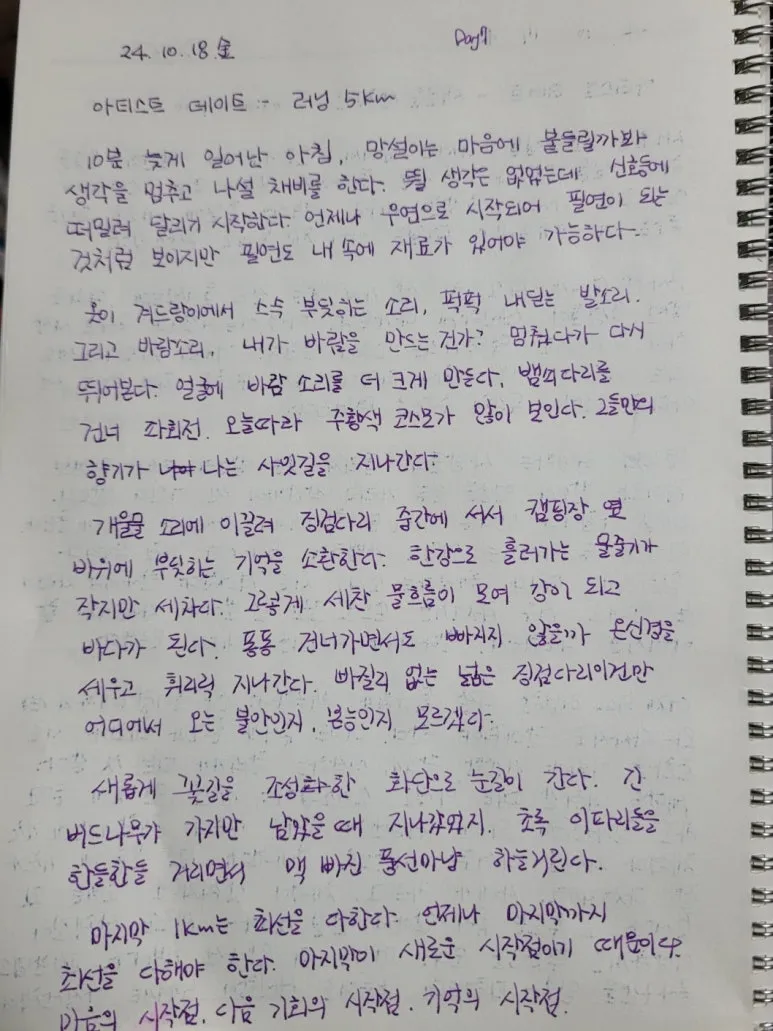 24. 10. 18 金
Day 7
아티스트 데이트 - 러닝 5km
10분 늦게 일어난 아침, 망설이는 마음에 붙들릴까봐
생각을 멈추고 나설 채비를 한다. 뛸 생각은 없었는데 신호등에
떠밀려 달리기 시작한다. 언제나 우연으로 시작되어 필연이 되는
것처럼 보이지만 필연도 내 속에 재료가 있어야 가능하다.
옷이 겨드랑이에서 스슥 부딪히는 소리, 퍽퍽 내딛는 발소리.
그리고 바람소리, 내가 바람을 만드는건가? 멈췄다가 다시
뛰어본다. 얼굴에 바람 소리를 더 크게 만든다. 뱀쇠다리를
건너 좌회전. 오늘따라 주황색 코스모가 많이 보인다. 그들만의
향기가 나는 사잇길을 지나간다.
개울물 소리에 이끌려 징검다리 중간에 서서 캠핑장 옆
바위에 부딪히는 기억을 소환한다. 한강으로 흘러가는 물줄기가
작지만 세차다. 그렇게 세찬 물흐름이 모여 강이 되고
바다가 된다. 퐁퐁 건너가면서도 빠지지 않을까 온신경을
세우고 휘리릭 지나간다. 빠질리 없는 넓은 징검다리이건만
어디에서 오는 불안인지, 본능인지 모르겠다.
새롭게 꽃길을 조성한 화단으로 눈길이 간다. 긴
버드나무가 가지만 남았을때 지나갔었지. 초록 이파리들을
한들한들 거리면서 맥 빠진 풍선마냥 하늘거린다.
마지막 1km는 최선을 다한다. 언제나 마지막까지
최선을 다해야 한다. 마지막이 새로운 시작점이기 때문이다.
마음의 시작점. 다음 기회의 시작점. 기억의 시작점.